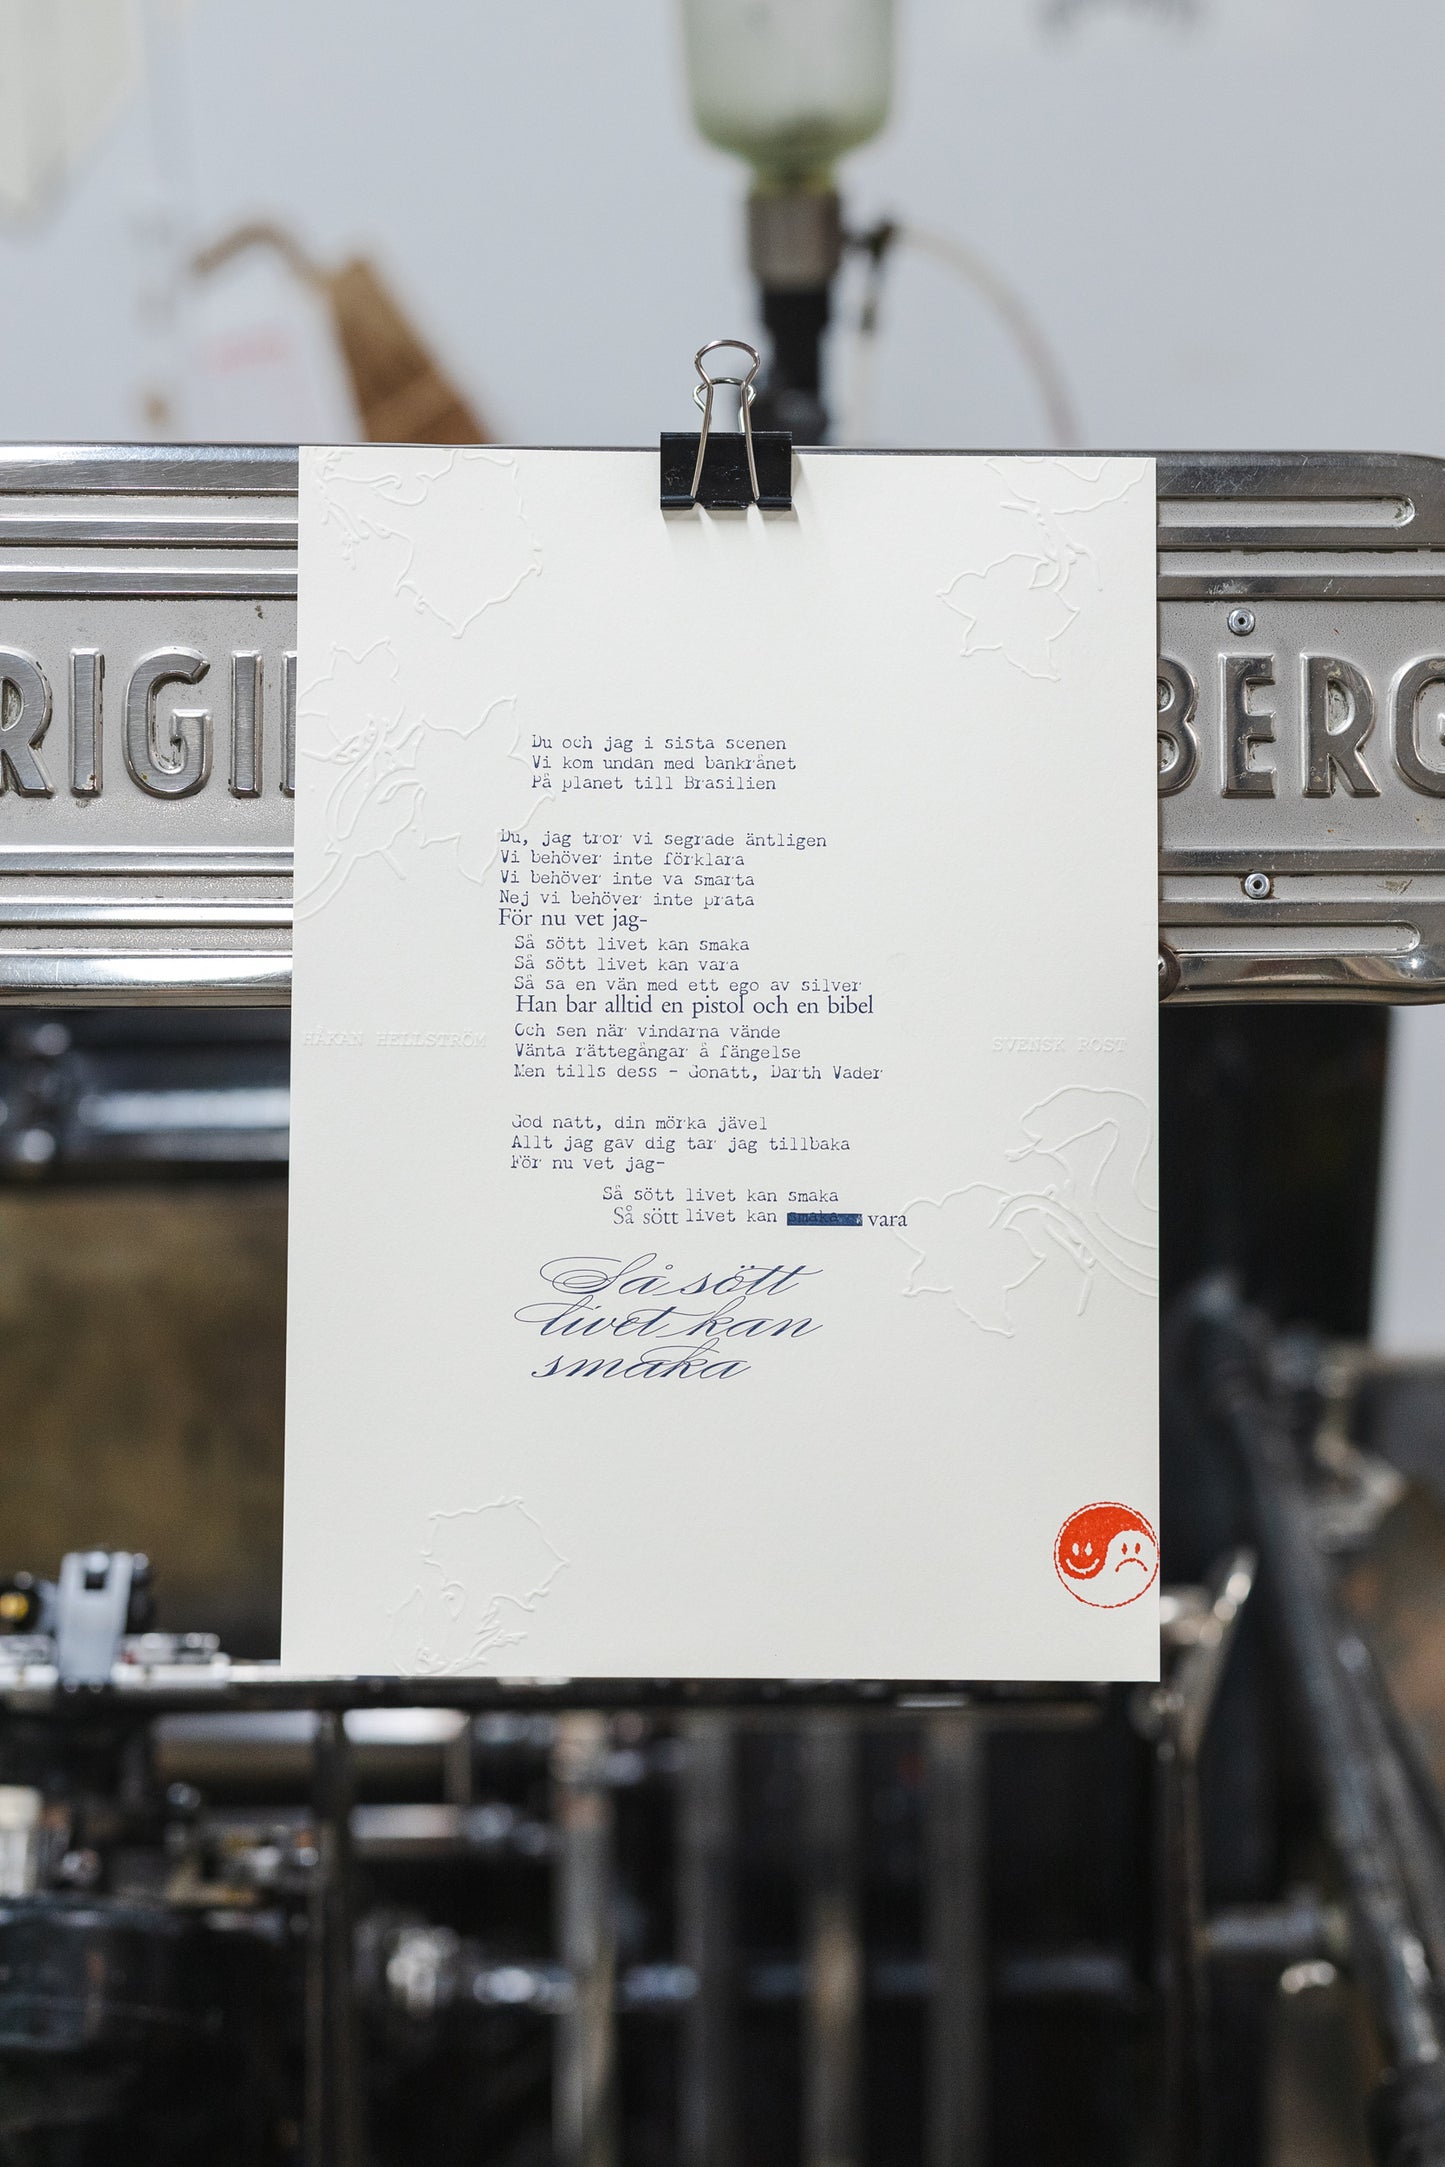 Du och jag i sista scenen
Vi kom undan med bankrånet
På planet till Brasilien
Du, jag tror vi segrade äntligen
Vi behöver inte förklara
Vi behöver inte va smarta
Nej vi behöver inte prata
För nu vet jag-
Så sött livet kan smaka
Så sött livet kan vara
Så sa en vän med ett ego av silver
Han bar alltid en pistol och en bibel
HÅKAN HELLSTRÖM
SVENSK ROST
Och sen när vindarna vände
Vänta rättegångar å fängelse
Men tills dess - Gonatt, Darth Vader
God natt, din mörka jävel
Allt jag gav dig tar jag tillbaka
För nu vet jag-
Så sött livet kan smaka
Så sött livet kan smaka vara
Så sött
livet kan
smaka